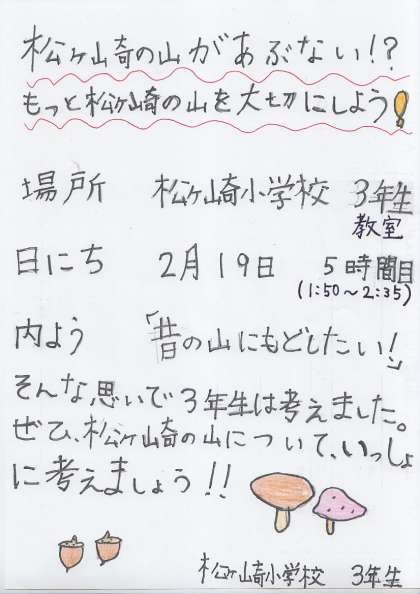 松ヶ山奇の山があぶない!?
もっと松ヶ崎の山を大切にしよう!
場所　松ヶ崎小学校　3年生
教室
日にち　2月19日　5時間目
(1:50～2:35)
内よう　「昔の山にもどしたい!」
そんな思いで3年生は考えました。
ぜひ、松ヶ崎の山について、いっしょ
に考えましょう!!
松ヶ崎小学校　3年生